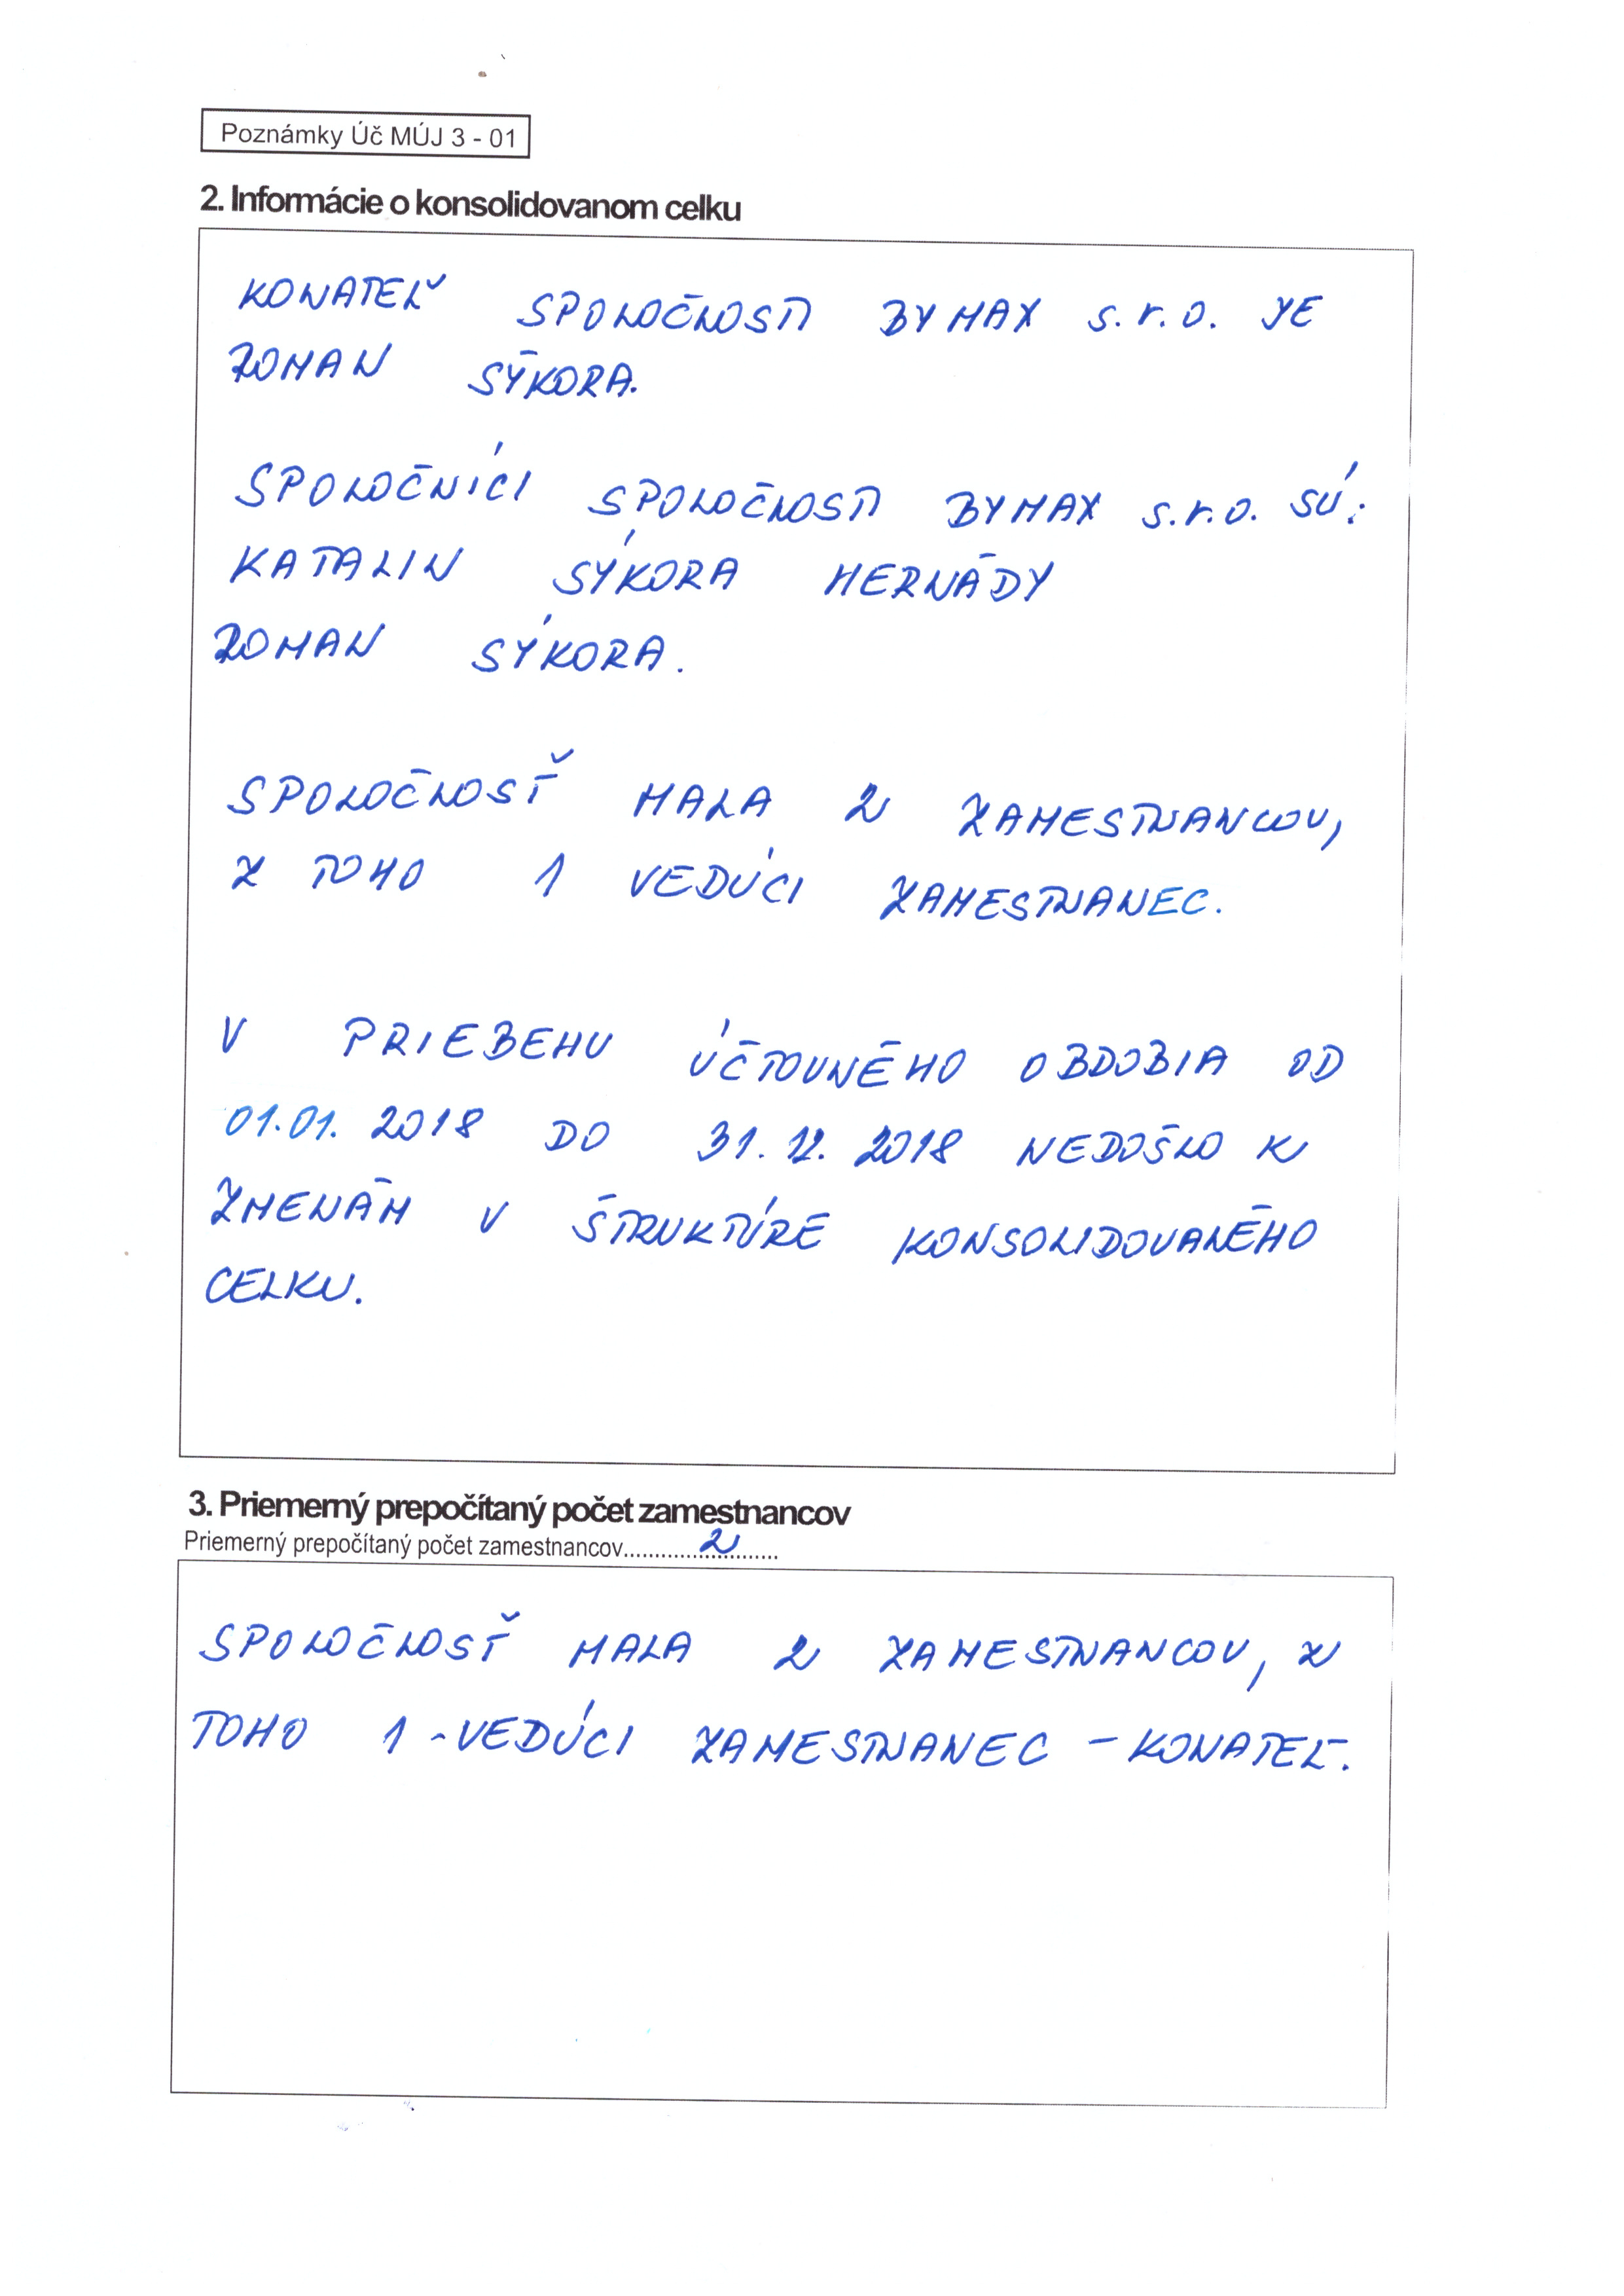 Poznámky Úč MÚJ 3 - 01
2. Informácie o konsolidovanom celku
KONATEĽ SPOLOČNOSTI BYMAX s.r.o. JE
ROMAN SÝKORA.
SPOLOČNÍCI SPOLOČNOSTI BYMAX s.r.o. SÚ:
KATALIN SÝKORA HERNÁDY
ROMAN SÝKORA.
SPOLOČNOSŤ MALA 2 ZAMESTNANCOV,
Z TOHO 1 VEDÚCI ZAMESTNANEC.
V PRIEBEHU ÚČTOVNÉHO OBDOBIA OD
01.01. 2018 DO 31. 12. 2018 NEDOŠLO K
ZMENÁM V ŠTRUKTÚRE KONSOLIDOVANÉHO
CELKU.
3. Priemerný prepočítaný počet zamestnancov
Priemerný prepočítaný počet zamestnancov.......2.......
SPOLOČNOSŤ MALA 2 ZAMESTNANCOV, Z
TOHO 1 - VEDÚCI ZAMESTNANEC - KONATEĽ.